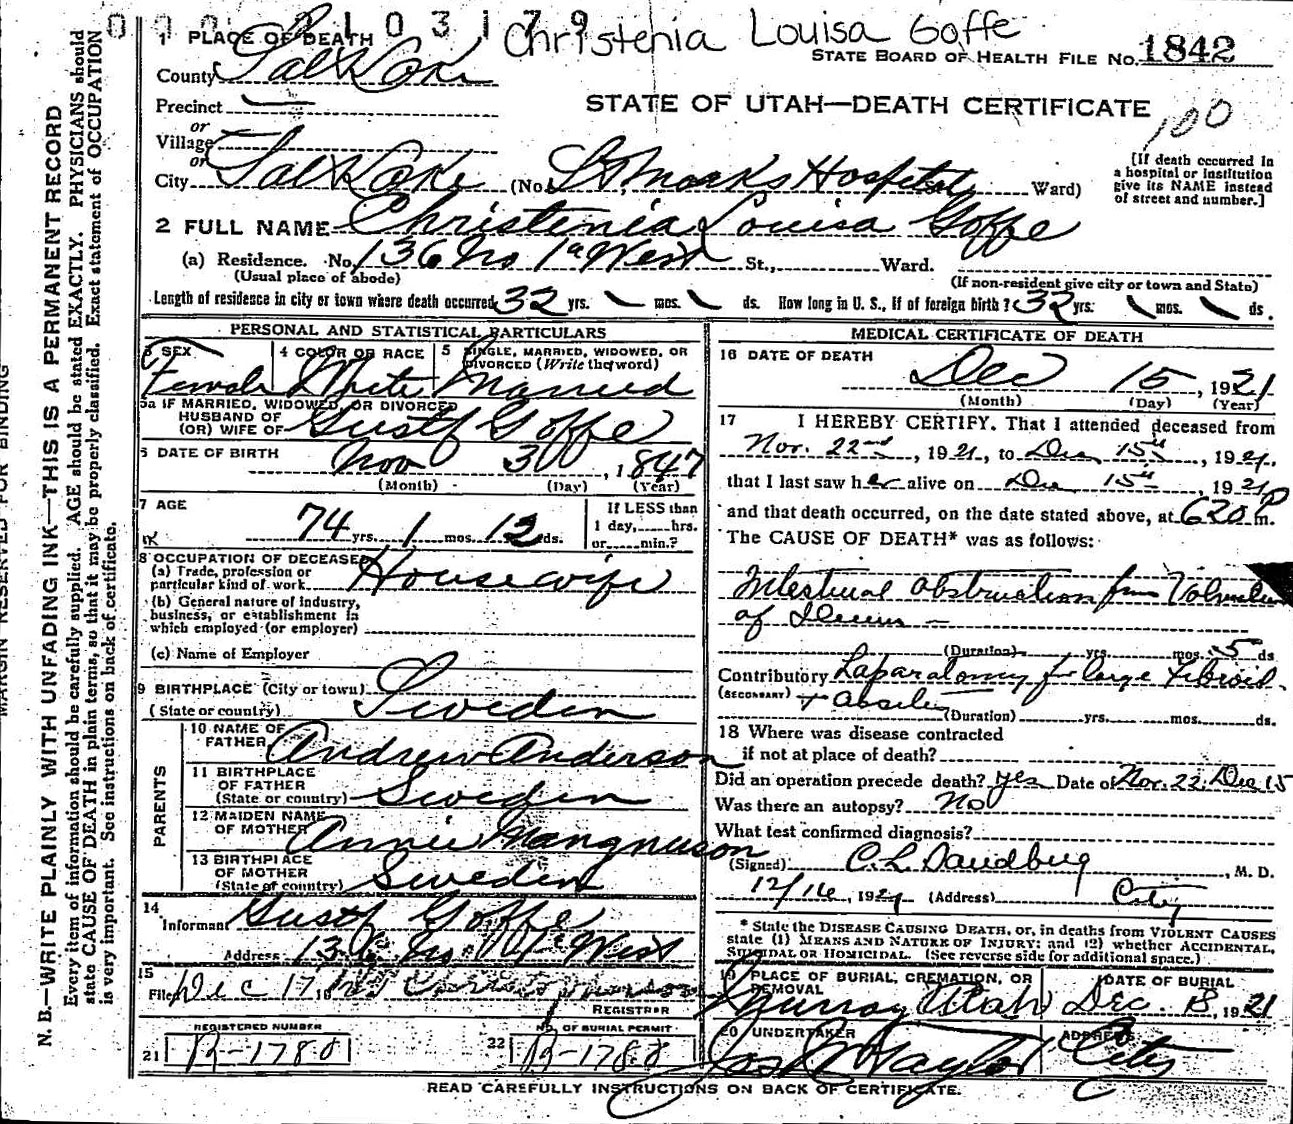 0 0 0 2 1 0 3 1 7 9
Christenia Louisa Goffe
1 PLACE OF DEATH
STATE BOARD OF HEALTH FILE NO. 1842
County Salt Lake
Precinct —
STATE OF UTAH—DEATH CERTIFICATE
100
or
Village
or
City Salt Lake (No. St Marks Hospital Ward)
[If death occurred in
a hospital or institution
give its NAME instead
of street and number.]
2 FULL NAME Christenia Louisa Goffe
(a) Residence. No. 136 No 1st West St., Ward.
(Usual place of abode)
(If non-resident give city or town and State)
Length of residence in city or town where death occurred 32 yrs. \ mos. \ ds. How long in U. S., if of foreign birth? 32 yrs. \ mos. \ ds.
PERSONAL AND STATISTICAL PARTICULARS
3 SEX
Female
4 COLOR OR RACE
White
5 SINGLE, MARRIED, WIDOWED, OR
DIVORCED (Write the word)
Married
5a IF MARRIED, WIDOWED, OR DIVORCED
HUSBAND OF
(OR) WIFE OF Gustf Goffe
6 DATE OF BIRTH
Nov 3 1847
(Month) (Day) (Year)
7 AGE
74 yrs. 1 mos. 12 ds.
If LESS than
1 day, hrs.
or min.?
8 OCCUPATION OF DECEASED
(a) Trade, profession or
particular kind of work Housewife
(b) General nature of industry,
business, or establishment in
which employed (or employer)
(c) Name of Employer
9 BIRTHPLACE (City or town)
(State or country) Sweden
PARENTS
10 NAME OF
FATHER Andrew Anderson
11 BIRTHPLACE
OF FATHER
(State or country) Sweden
12 MAIDEN NAME
OF MOTHER Annie Mangnuson
13 BIRTHPLACE
OF MOTHER
(State or country) Sweden
14
Informant Gustf Goffe
Address 136 No 1st West
15
Filed Dec 17
REGISTRAR
REGISTERED NUMBER
21 R-1788
NO. OF BURIAL PERMIT
22 R-1788
MEDICAL CERTIFICATE OF DEATH
16 DATE OF DEATH
Dec 15, 1921
(Month) (Day) (Year)
17 I HEREBY CERTIFY, That I attended deceased from
Nov. 22nd, 1921, to Dec 15th, 1921,
that I last saw her alive on Dec 15th 1921
and that death occurred, on the date stated above, at 620 P m.
The CAUSE OF DEATH* was as follows:
Intestinal Obstruction from Volvulus
of Ileum —
(Duration) yrs. mos. 5 ds
Contributory Laparatomy for large Fibroid
(SECONDARY) + Abscess
(Duration) yrs. mos. ds.
18 Where was disease contracted
if not at place of death?
Did an operation precede death? yes Date of Nov. 22. Dec 15
Was there an autopsy? No
What test confirmed diagnosis?
(Signed) C. L. Sandberg, M. D.
12/16, 1921 (Address) City
* State the DISEASE CAUSING DEATH, or, in deaths from VIOLENT CAUSES
state (1) MEANS AND NATURE OF INJURY; and (2) whether ACCIDENTAL,
SUICIDAL OR HOMICIDAL. (See reverse side for additional space.)
19 PLACE OF BURIAL, CREMATION, OR
REMOVAL
Murray Utah
DATE OF BURIAL
Dec. 18, 1921
20 UNDERTAKER
Jos Wm Taylor
ADDRESS
City
READ CAREFULLY INSTRUCTIONS ON BACK OF CERTIFICATE.
MARGIN RESERVED FOR BINDING
N. B.—WRITE PLAINLY WITH UNFADING INK—THIS IS A PERMANENT RECORD
Every item of information should be carefully supplied. AGE should be stated EXACTLY. PHYSICIANS should
state CAUSE OF DEATH in plain terms, so that it may be properly classified. Exact statement of OCCUPATION
is very important. See instructions on back of certificate.